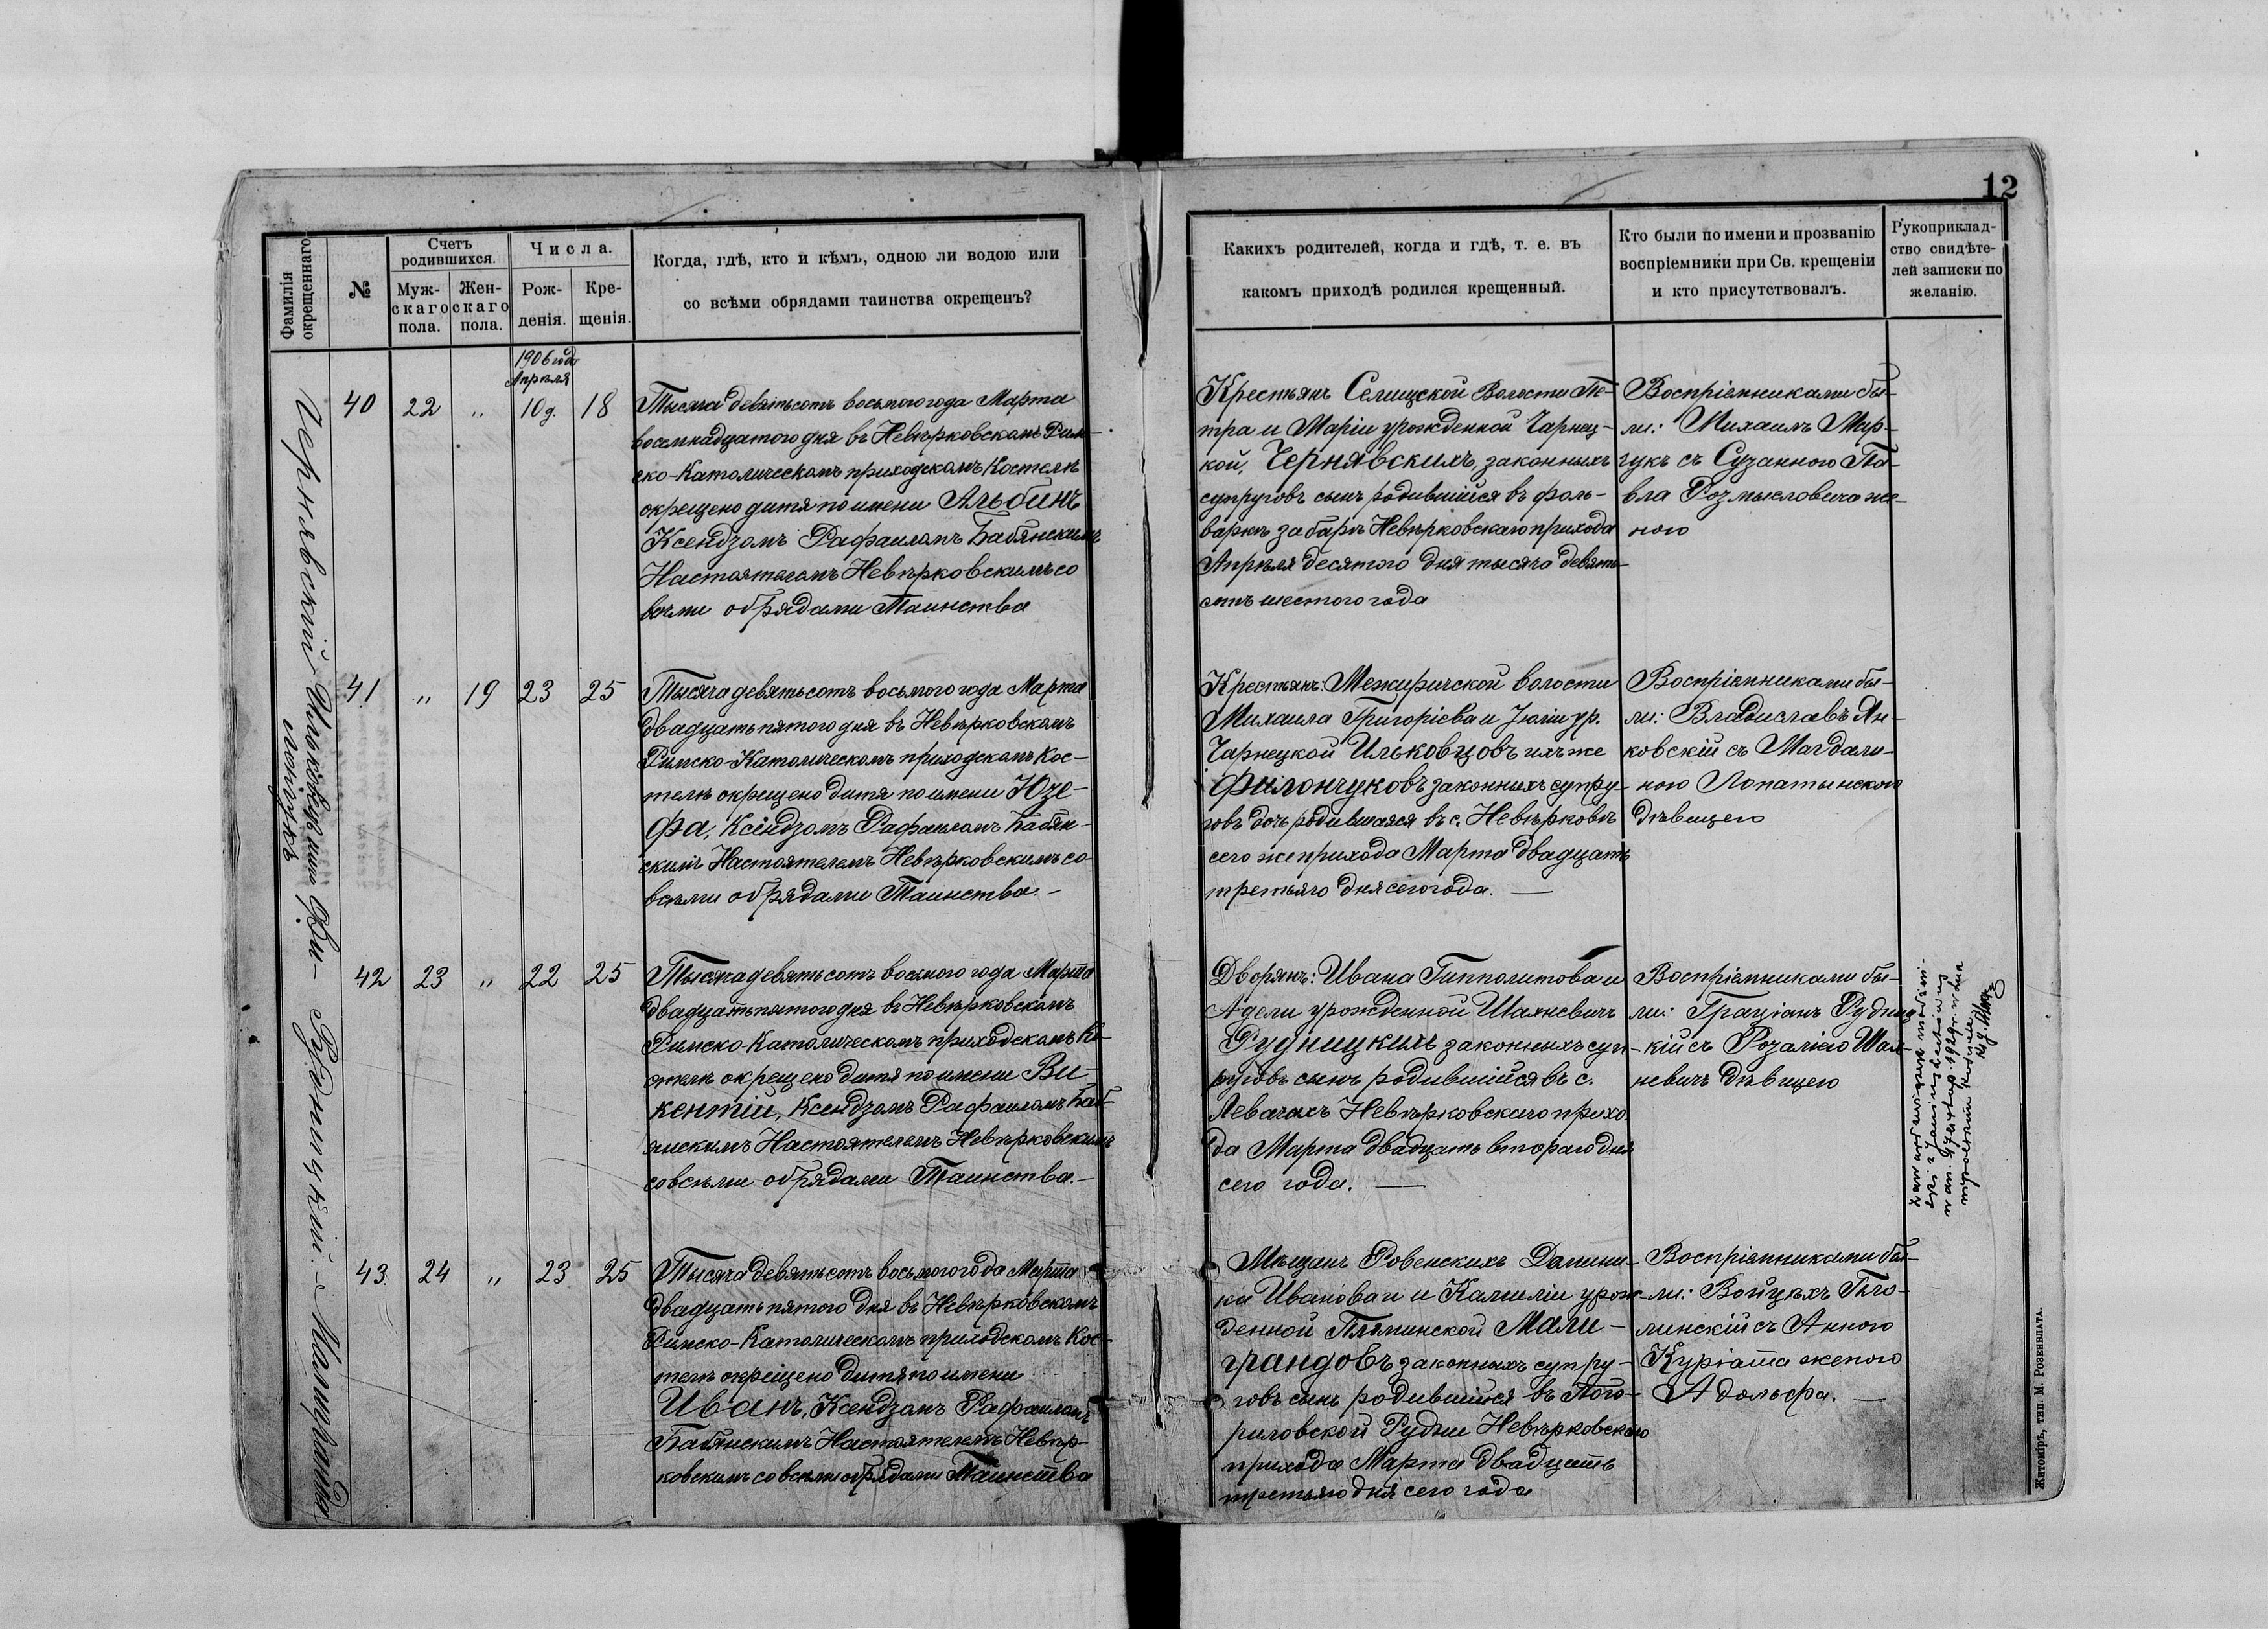 12
Фамилія окрещеннаго
№
Счетъ родившихся.
Муж-
скаго
пола.
Жен-
скаго
пола.
Числа.
Рож-
денія.
Кре-
щенія.
Когда, гдѣ, кто и кѣмъ, одною ли водою или
со всѣми обрядами таинства окрещенъ?
Какихъ родителей, когда и гдѣ, т. е. въ
какомъ приходѣ родился крещенный.
Кто были по имени и прозванію
воспріемники при Св. крещеніи
и кто присутствовалъ.
Рукоприклад-
ство свидѣте-
лей записки по
желанію.
Чернявскій
40 22 „ 1906 года Апрѣля 10 д. 18
Тысяча девятьсотъ восьмого года Марта
восемнадцатого дня въ Невѣрковскомъ Рим-
ско-Католическомъ приходскомъ Костелѣ
окрещено дитя по имени Альбинъ
Ксендзомъ Рафаиломъ Бабянскимъ
Настоятелемъ Невѣрковскимъ со
всѣми обрядами Таинства
Крестьянъ Селищской Волости Пе-
тра и Маріи урожденной Чарнец-
кой, Чернявскихъ, законныхъ
супруговъ сынъ родившійся въ фоль-
варкѣ забарѣ Невѣрковскаго прихода
Апрѣля десятого дня тысяча девять-
сотъ шестого года
Воспріемниками бы-
ли: Михаилъ Мар-
чукъ съ Сузанною Па-
вла Розмысловича же-
ною
41 „ 19 23 25
Тысяча девятьсотъ восьмого года Марта
двадцать пятого дня въ Невѣрковскомъ
Римско-Католическомъ приходскомъ Кос-
телѣ окрещено дитя по имени Юзе-
фа, Ксендзомъ Рафаиломъ Бабян-
скимъ Настоятелемъ Невѣрковскимъ со-
всѣми обрядами Таинства. –
Крестьянъ: Межиричской волости
Михаила Григоріева и Юліи ур.
Чарнецкой Ильковцовъ ихъ же
Филончуковъ законныхъ супру-
говъ дочь родившаяся въ с. Невѣрковѣ
сего же прихода Марта двадцать
третьяго дня сего года. —
Воспріемниками бы-
ли: Владиславъ Ян-
ковскій съ Магдали-
ною Лопатынскою
дѣвицею
Рудницкій
42 23 „ 22 25
Тысяча девятьсотъ восьмого года Марта
двадцать пятого дня въ Невѣрковскомъ
Римско-Католическомъ приходскомъ Ко-
стелѣ окрещено дитя по имени Ви-
кентій, Ксендзомъ Рафаиломъ Баб-
янскимъ Настоятелемъ Невѣрковскимъ
со всѣми обрядами Таинства. –
Дворянъ: Ивана Гипполитова и
Адели урожденной Шахневичъ
Рудницкихъ законныхъ суп-
руговъ сынъ родившійся въ с.
Левачахъ Невѣрковскаго прихо-
да Марта двадцать второго дня
сего года. —
Воспріемниками бы-
ли: Граціанъ Рудниц-
кій съ Розалією Шах-
невичъ дѣвицею
Малиграндъ
43 24 „ 23 25
Тысяча девятьсотъ восьмого года Марта
двадцать пятого дня въ Невѣрковскомъ
Римско-Католическомъ приходскомъ Кос-
телѣ окрещено дитя по имени
Иванъ, Ксендзомъ Рафаиломъ
Бабянскимъ Настоятелемъ Невѣр-
ковскимъ со всѣми обрядами Таинства
Мѣщанъ Ровенскихъ Домини-
ка Иванова и и Камиліи урож-
денной Мали-
грандовъ законныхъ супру-
говъ сынъ родившійся въ Пого-
риловской Рудни Невѣрковскаго
прихода Марта двадцать
третьяго дня сего года
Воспріемниками бы-
ли: Войцѣхъ
съ Анною
женою
Адольфа. —
Житоміръ, тип. М. Розенблата.